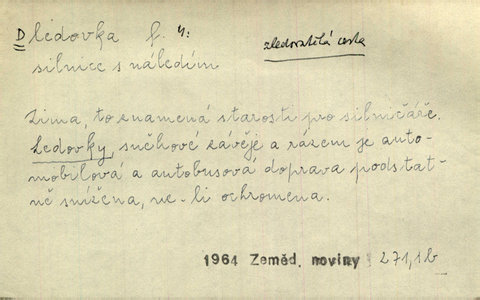 D ledovka f. 4:
zledovatělá cesta
silnice s náledím
Zima, to znamená starosti pro silničáře.
Ledovky, sněhové závěje a rázem je auto-
mobilová a autobusová doprava podstat-
ně snížena, ne-li ochromena.
1964 Zeměd. noviny 271,1b